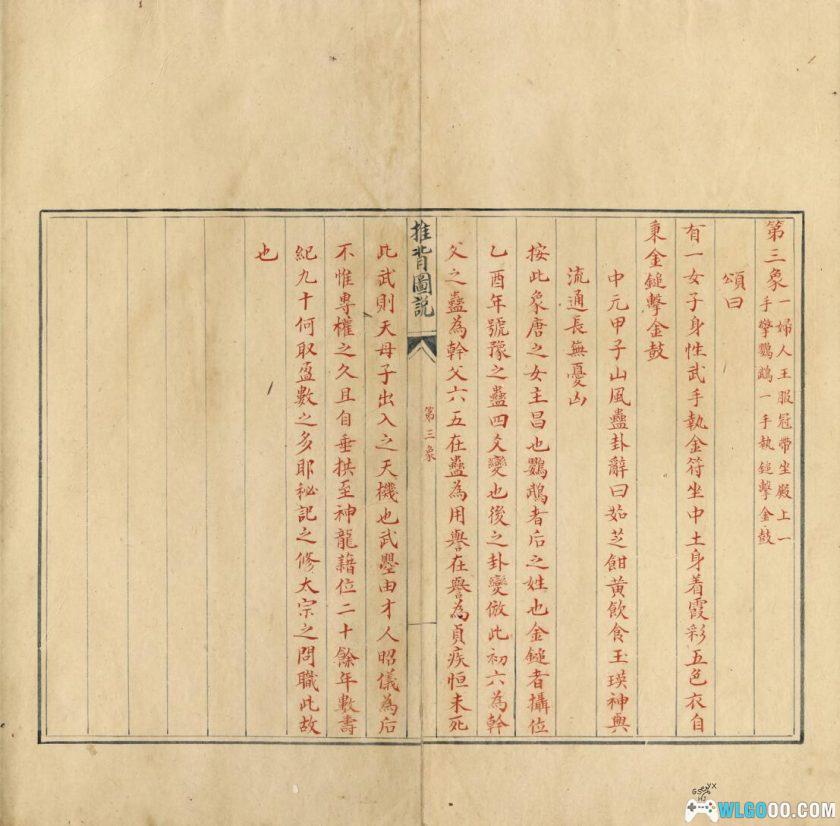 第三象一婦人王服冠帶坐殿上一
手擎鸚鵡一手執鎚擊金鼓
頌曰
有一女子身性武手執金符坐中土身着霞彩五色衣自
秉金鎚擊金鼓
中元甲子山風蠱卦辭曰茹芝飷黃飲食玉瑛神與
流通長無憂凶
按此象唐之女主昌也鸚鵡者后之姓也金鎚者攝位
乙酉年號豫之蠱四爻變也後之卦變倣此初六為幹
父之蠱為幹父六五在蠱為用譽在譽為貞疾恒未死
推背圖說
第三象
此武則天母子出入之天機也武曌由才人昭儀為后
不惟專權之久且自垂拱至神龍藉位二十餘年數壽
紀九十何取盈數之多耶秘記之修太宗之問職此故
也
WLGOOO.COM